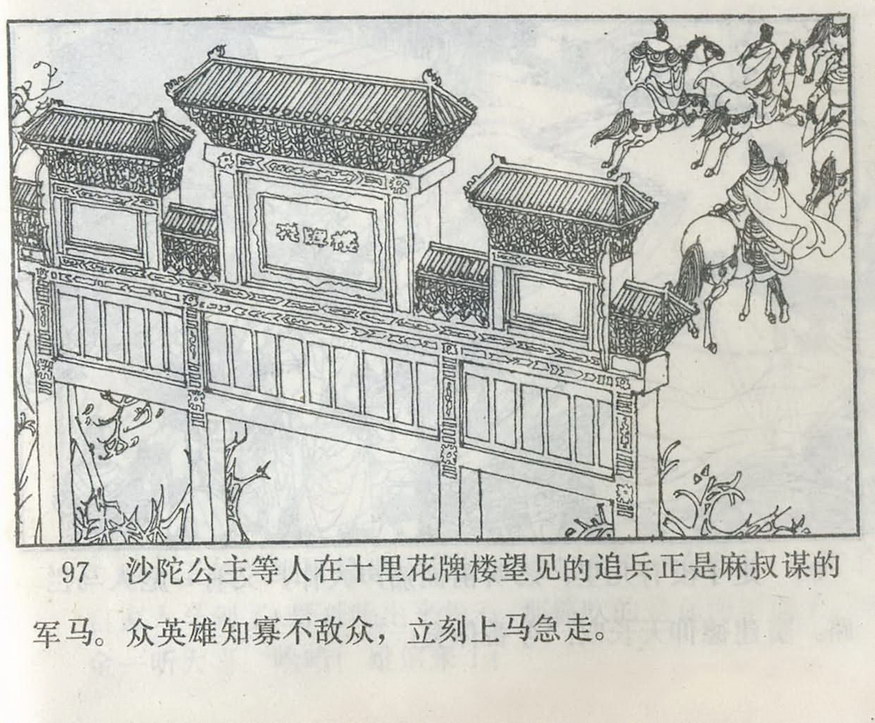 花牌楼
97 沙陀公主等人在十里花牌楼望见的追兵正是麻叔谋的
军马。众英雄知寡不敌众，立刻上马急走。